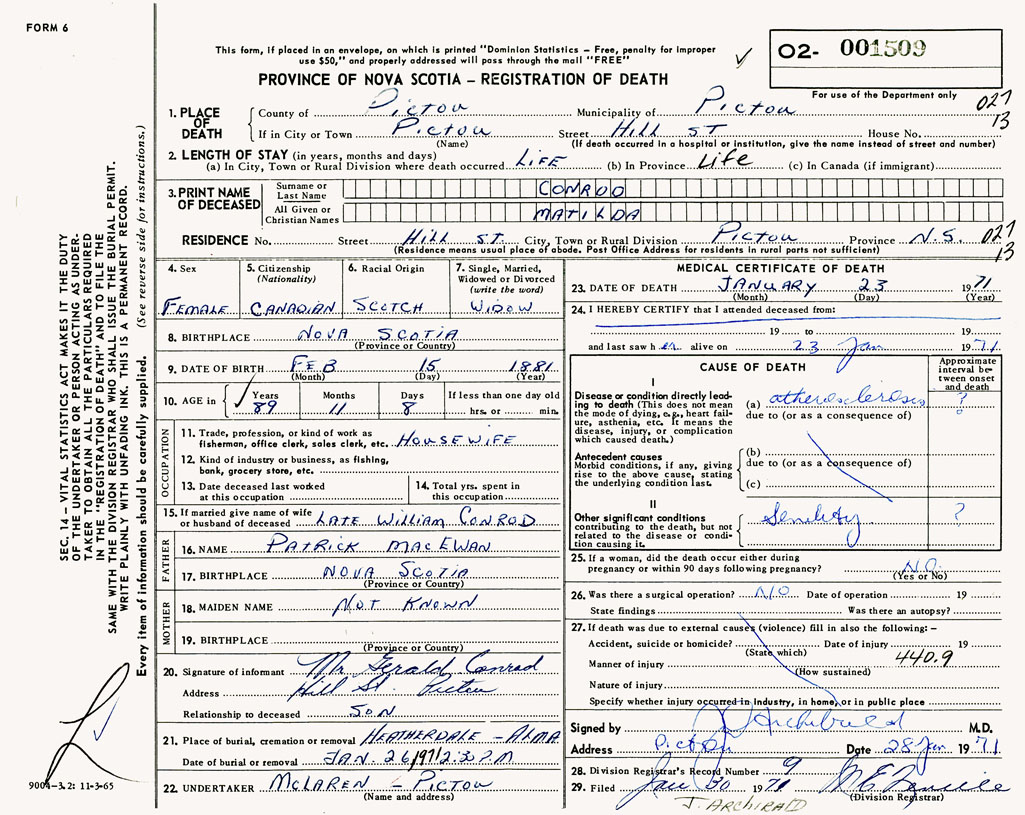 FORM 6
This form, if placed in an envelope, on which is printed "Dominion Statistics – Free, penalty for improper
use $50," and properly addressed will pass through the mail "FREE"
PROVINCE OF NOVA SCOTIA – REGISTRATION OF DEATH
02- 001509
For use of the Department only
027
13
1. PLACE OF DEATH
County of Pictou Municipality of Pictou
If in City or Town Pictou Street Hill ST House No.
(Name) (If death occurred in a hospital or institution, give the name instead of street and number)
2. LENGTH OF STAY (in years, months and days)
(a) In City, Town or Rural Division where death occurred LIFE (b) In Province Life (c) In Canada (if immigrant)
3. PRINT NAME OF DECEASED
Surname or Last Name CONROD
All Given or Christian Names MATILDA
RESIDENCE No. Street Hill ST. City, Town or Rural Division Pictou Province N.S. 027
(Residence means usual place of abode. Post Office Address for residents in rural parts not sufficient) 13
4. Sex FEMALE
5. Citizenship (Nationality) CANADIAN
6. Racial Origin SCOTCH
7. Single, Married, Widowed or Divorced (write the word) WIDOW
8. BIRTHPLACE NOVA SCOTIA
(Province or Country)
9. DATE OF BIRTH FEB 15 1881
(Month) (Day) (Year)
10. AGE in Years Months Days If less than one day old
89 11 8 hrs. or min.
OCCUPATION
11. Trade, profession, or kind of work as
fisherman, office clerk, sales clerk, etc. HOUSEWIFE
12. Kind of industry or business, as fishing,
bank, grocery store, etc.
13. Date deceased last worked
at this occupation
14. Total yrs. spent in
this occupation
15. If married give name of wife
or husband of deceased LATE WILLIAM CONROD
FATHER
16. NAME PATRICK MACEWAN
17. BIRTHPLACE NOVA SCOTIA
(Province or Country)
MOTHER
18. MAIDEN NAME NOT KNOWN
19. BIRTHPLACE
(Province or Country)
20. Signature of informant Mr Gerald Conrad
Address Hill St. Pictou
Relationship to deceased SON
21. Place of burial, cremation or removal HEATHERDALE – ALMA
Date of burial or removal JAN. 26/1971 2:30 P.M
22. UNDERTAKER McLAREN – PICTOU
(Name and address)
MEDICAL CERTIFICATE OF DEATH
23. DATE OF DEATH JANUARY 23 1971
(Month) (Day) (Year)
24. I HEREBY CERTIFY that I attended deceased from:
19 to 19
and last saw h er alive on 23 Jan 1971
CAUSE OF DEATH
Approximate interval between onset and death
I
Disease or condition directly leading
to death (This does not mean
the mode of dying, e.g., heart failure,
asthenia, etc. It means the
disease, injury, or complication
which caused death.)
(a) atherosclerosis ?
due to (or as a consequence of)
Antecedent causes
Morbid conditions, if any, giving
rise to the above cause, stating
the underlying condition last.
(b)
due to (or as a consequence of)
(c)
II
Other significant conditions
contributing to the death, but not
related to the disease or condition
causing it.
Senility ?
25. If a woman, did the death occur either during
pregnancy or within 90 days following pregnancy? NO
(Yes or No)
26. Was there a surgical operation? NO Date of operation 19
State findings Was there an autopsy?
27. If death was due to external causes (violence) fill in also the following:–
Accident, suicide or homicide? Date of injury 19
(State which) 440.9
Manner of injury
(How sustained)
Nature of injury
Specify whether injury occurred in Industry, in home, or in public place
Signed by J Archibald M.D.
Address Pictou Date 28 Jan 1971
28. Division Registrar's Record Number 9
29. Filed Jan 30 1971
(Division Registrar)
J. ARCHIBALD
SEC. 14 – VITAL STATISTICS ACT MAKES IT THE DUTY
OF THE UNDERTAKER OR PERSON ACTING AS UNDERTAKER
TO OBTAIN ALL THE PARTICULARS REQUIRED
IN THE "REGISTRATION OF DEATH" AND TO FILE THE
SAME WITH THE DIVISION REGISTRAR WHO SHALL ISSUE THE BURIAL PERMIT.
WRITE PLAINLY WITH UNFADING INK. THIS IS A PERMANENT RECORD.
Every item of information should be carefully supplied. (See reverse side for instructions.)
9004-3.2: 11-3-65